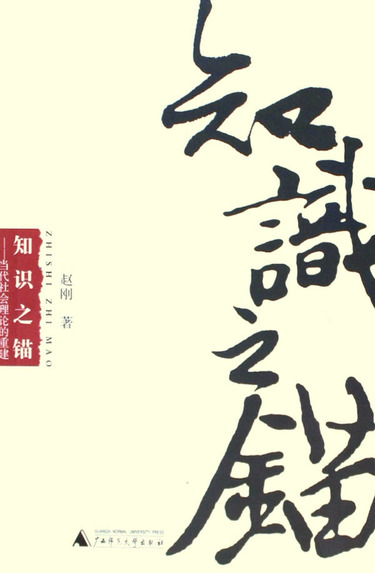 知識之錨
知识之锚
——当代社会理论的重建
ZHISHI ZHI MAO
赵刚 著
GUANGXI NORMAL UNIVERSITY PRESS
广西师范大学出版社